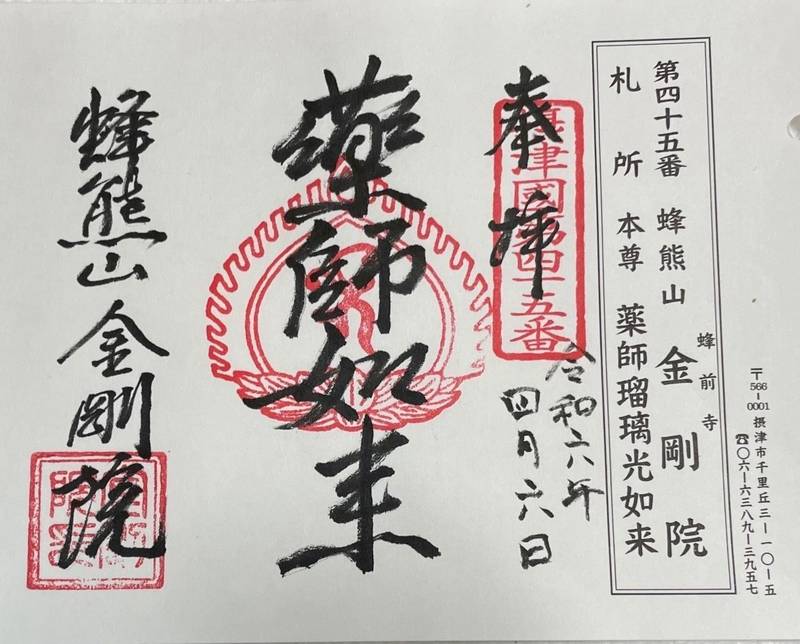 第四十五番 蜂熊山 金剛院
蜂前寺
札所 本尊 薬師瑠璃光如来
〒566-0001 摂津市千里丘三ー一〇ー五
☎〇六ー六三八九ー三九五七
奉拝
摂津國第四十五番
令和六年
四月六日
薬師如来
蜂熊山金剛院